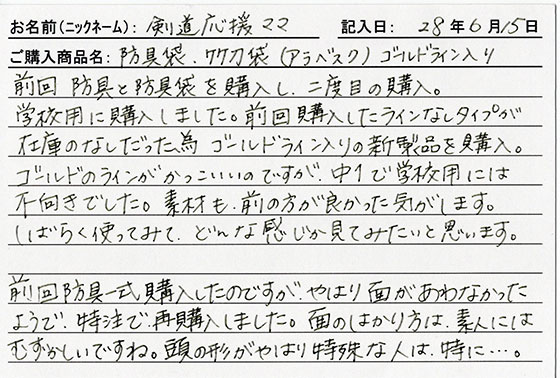 お名前(ニックネーム): 剣道応援ママ 記入日: 28年6月15日
ご購入商品名: 防具袋、竹刀袋(アラベスク)ゴールドライン入り
前回 防具と防具袋を購入し、二度目の購入。
学校用に購入しました。前回購入したラインなしタイプが
在庫のなしだった為 ゴールドライン入りの新製品を購入。
ゴールドのラインがかっこいいのですが、中1で学校用には
不向きでした。素材も、前の方が良かった気がします。
しばらく使ってみて、どんな感じか見てみたいと思います。
前回防具一式購入したのですが、やはり面があわなかった
ようで、特注で再購入しました。面のはかり方は、素人には
むずかしいですね。頭の形がやはり特殊な人は、特に…。